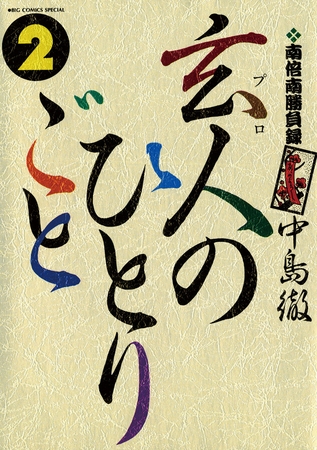 ●BIG COMICS SPECIAL
2
南倍南勝負録
玄人の
プロ
ひとり
ごと
中島徹